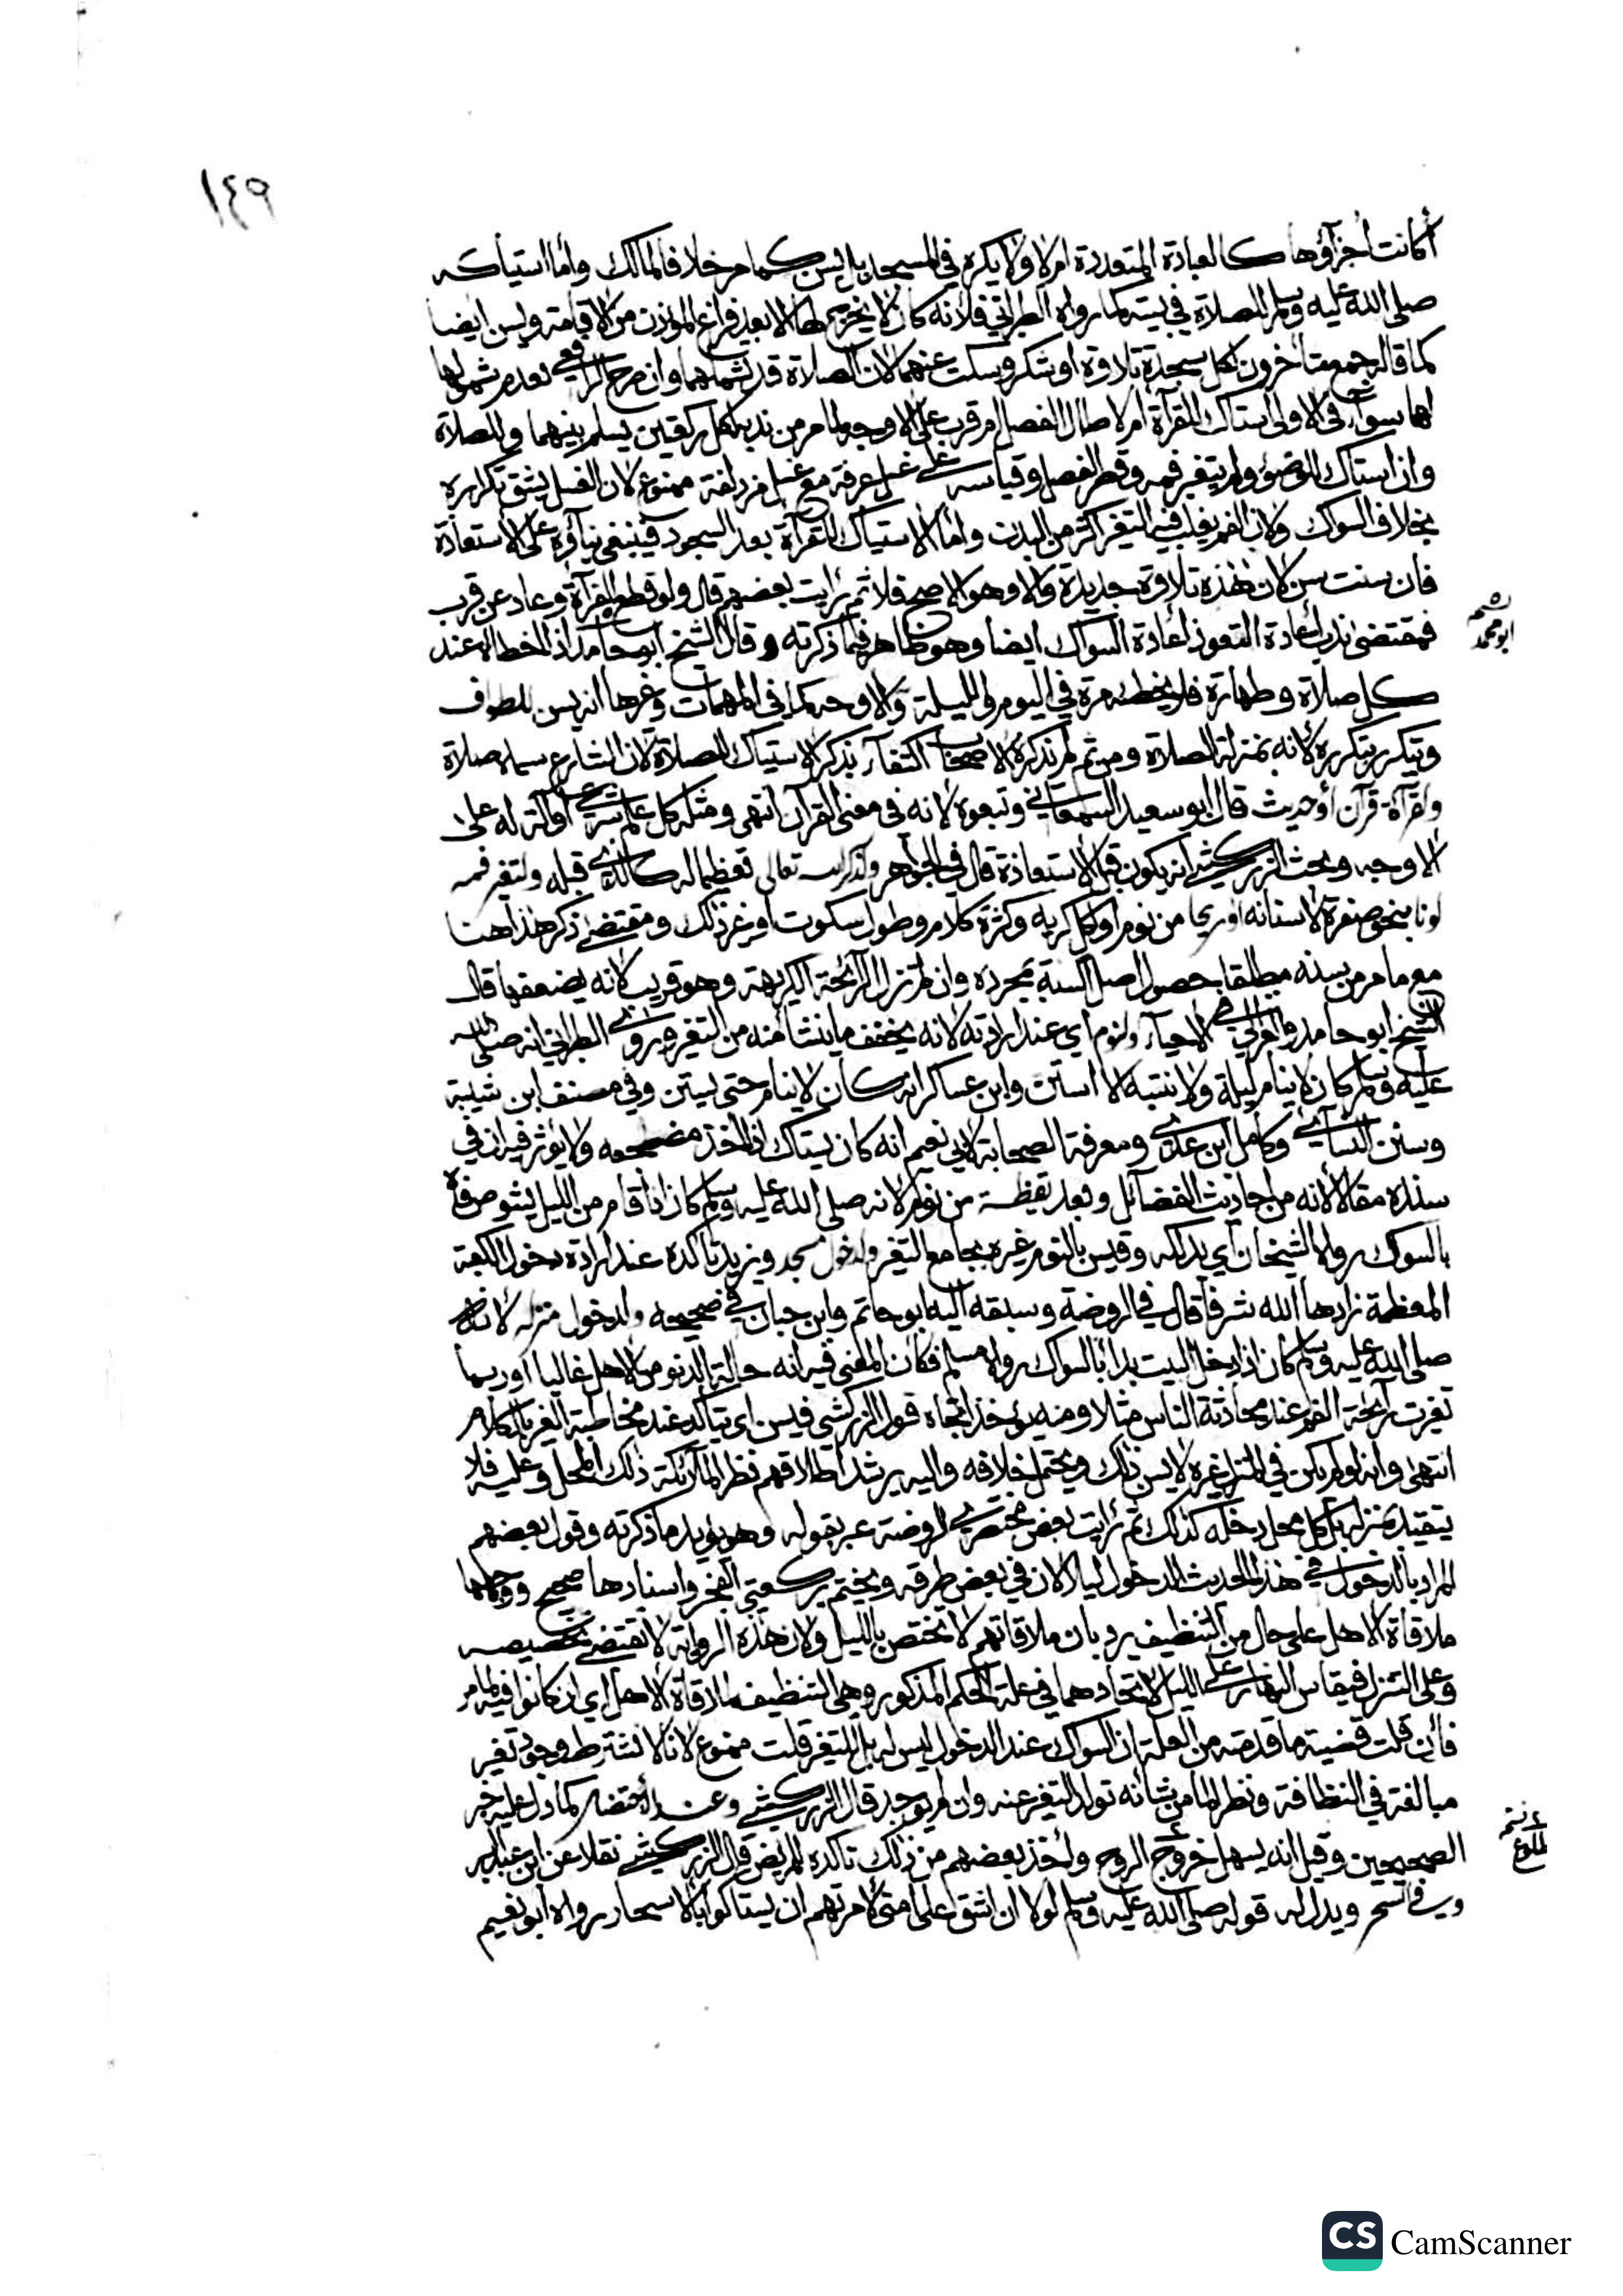 ١٤٩
أكانت أجزاؤها كالعبادة المتعددة أم لا ولا يكره في المسجد بل يسن كما مر خلافا لمالك وأما استياكه
صلى الله عليه وسلم للصلاة في بيته كما رواه الطبراني فلأنه كان لا يخرج لها إلا بعد فراغ المؤذن من الإقامة ويسن أيضا
كما قاله جمع متأخرون لكل سجدة تلاوة أو شكر وسكت عنهما لأن الصلاة قد تشملهما وإن صرح الرافعي بعدم شمولها
لها سواء في الأولى استاك للقرآءة أم لا طال الفصل أم قرب على الأوجه لما مر من ندبه لكل ركعتين يسلم بينهما وللصلاة
وان استاك للوضوء ولم يتغير فمه وقصر الفصل وقياسه على غسل عرفة مع غسل مزدلفة ممنوع لأن الغسل يشق تكراره
بخلاف السواك ولأن الفم يغلب فيه التغير أكثر من البدن وأما الاستياك للقرآءة بعد السجود فينبغي بناؤه على الاستعاذة
فان سنت سن لأن هذه تلاوة جديدة والا وهو الأصح فلا ثم رأيت بعضهم قال ولو قطع القرآءة وعاد عن قرب
فمقتضى ندب إعادة التعوذ إعادة السواك أيضا وهو ظاهر فيما ذكرته وقال الشيخ أبو حامد اذا لم يحط له عند
كل صلاة وطهارة فلا يخطئه مرة في اليوم والليلة والأوجه كما في المهمات وغيرها أنه يسن للطواف
ويتكرر بتكرره لأنه بمنزلة الصلاة ومن ثم لم تذكره الأصحاب اكتفاء بذكر الاستياك للصلاة لأن الشارع سماه صلاة
ولقرآءة قرآن أو حديث قال أبو سعيد السمعاني وتبعوه لأنه في معنى القرآن انتهى ومثله كل علم شرعي أو آلة له على
الأوجه وبحث الزركشي أنه يكون قبل الاستعاذة قال في الجواهر ولذكر الله تعالى تعظيما له كالذي قبله ولتغير فمه
لونا بنحو صفرة لأسنانه أو ريحا من نوم أو أكل كريه وكثرة كلام وطول سكوت أو غير ذلك ومقتضى ذكر هذا هنا
مع ما مر من سنه مطلقا حصول أصل السنة بمجرده وان لم تزل الرائحة الكريهة وهو قريب لأنه يضعفها قال
الشيخ أبو حامد والغزالي في الإحياء ولنوم أي عند إرادته لأنه يخفف ما ينشأ منه من التغير وروى الطبراني أنه صلى الله
عليه وسلم كان لا ينام ليلة ولا ينتبه إلا استن وابن عساكر أنه كان لا ينام حتى يستن وفي مصنف ابن شيبة
وسنن النسائي وكامل ابن عدي ومعرفة الصحابة لأبي نعيم أنه كان يستاك إذا أخذ مضجعه ولا يؤثر فيه أن في
سنده مقالا لأنه من أحاديث الفضائل وبعد يقظة من نوم لأنه صلى الله عليه وسلم كان إذا قام من الليل يشوص فاه
بالسواك رواه الشيخان أي يدلكه وقيس بالنوم غيره بجامع التغير ولدخول مسجد ويزيد تأكده عند إرادة دخول الكعبة
المعظمة زادها الله شرفا قال في الروضة وسبقه اليه أبو حاتم وابن حبان في صحيحه ولدخول منزله لأنه
صلى الله عليه وسلم كان إذا دخل البيت بدأ بالسواك رواه مسلم فكأن المعنى فيه أنه حالة الدنو من الأهل غالبا أو ربما
تغيرت رائحة الفم عند محادثة الناس مثلا ومنه يؤخذ اتجاه قول الزركشي فيسن أي يتأكد عند مخاطبة الغير بالكلام
انتهى وأنه لو لم يكن في المنزل غيره لا يسن ذلك ويحتمل خلافه واليه يرشد اطلاقهم نظرا لملائكة ذلك المحل وعليه فلا
يتقيد بمنزله بل كل محل يدخله كذلك ثم رأيت بعض مختصري الروضة عبر بقوله وهو يؤيد ما ذكرته وقول بعضهم
المراد بالدخول في هذا الحديث الدخول ليلا لأن في بعض طرقه ويختم بركعتي الفجر وإسنادها صحيح ووجهها
ملاقاة الأهل على حال من التنظيف يرد بأن ملاقاتهم لا تختص بالليل ولأن هذه الرواية لا تقتضي تخصيصه
وعلى التنزل فيقاس النهار على الليل لاتحادهما في علة الحكم المذكور وهي التنظيف لملاقاة الأهل أي إن كانوا فيه لما مر
فان قلت قضية ما قدمته من العلة أن السواك عند الدخول ليس له بل للتغير قلت ممنوع لأنا لا نشترط وجود تغير
مبالغة في النظافة ونظرا لما من شأنه تولد التغير عنه وان لم يوجد قال الزركشي وعند الاحتضار كما دل عليه خبر
الصحيحين وقيل إنه يسهل خروج الروح وأخذ بعضهم من ذلك تأكده للمريض قال الزركشي نقلا عن ابن عبد البر
وفي السحر ويدل له قوله صلى الله عليه وسلم لولا أن أشق على أمتي لأمرتهم أن يستاكوا بالأسحار رواه أبو نعيم
أبو محمد
CS CamScanner